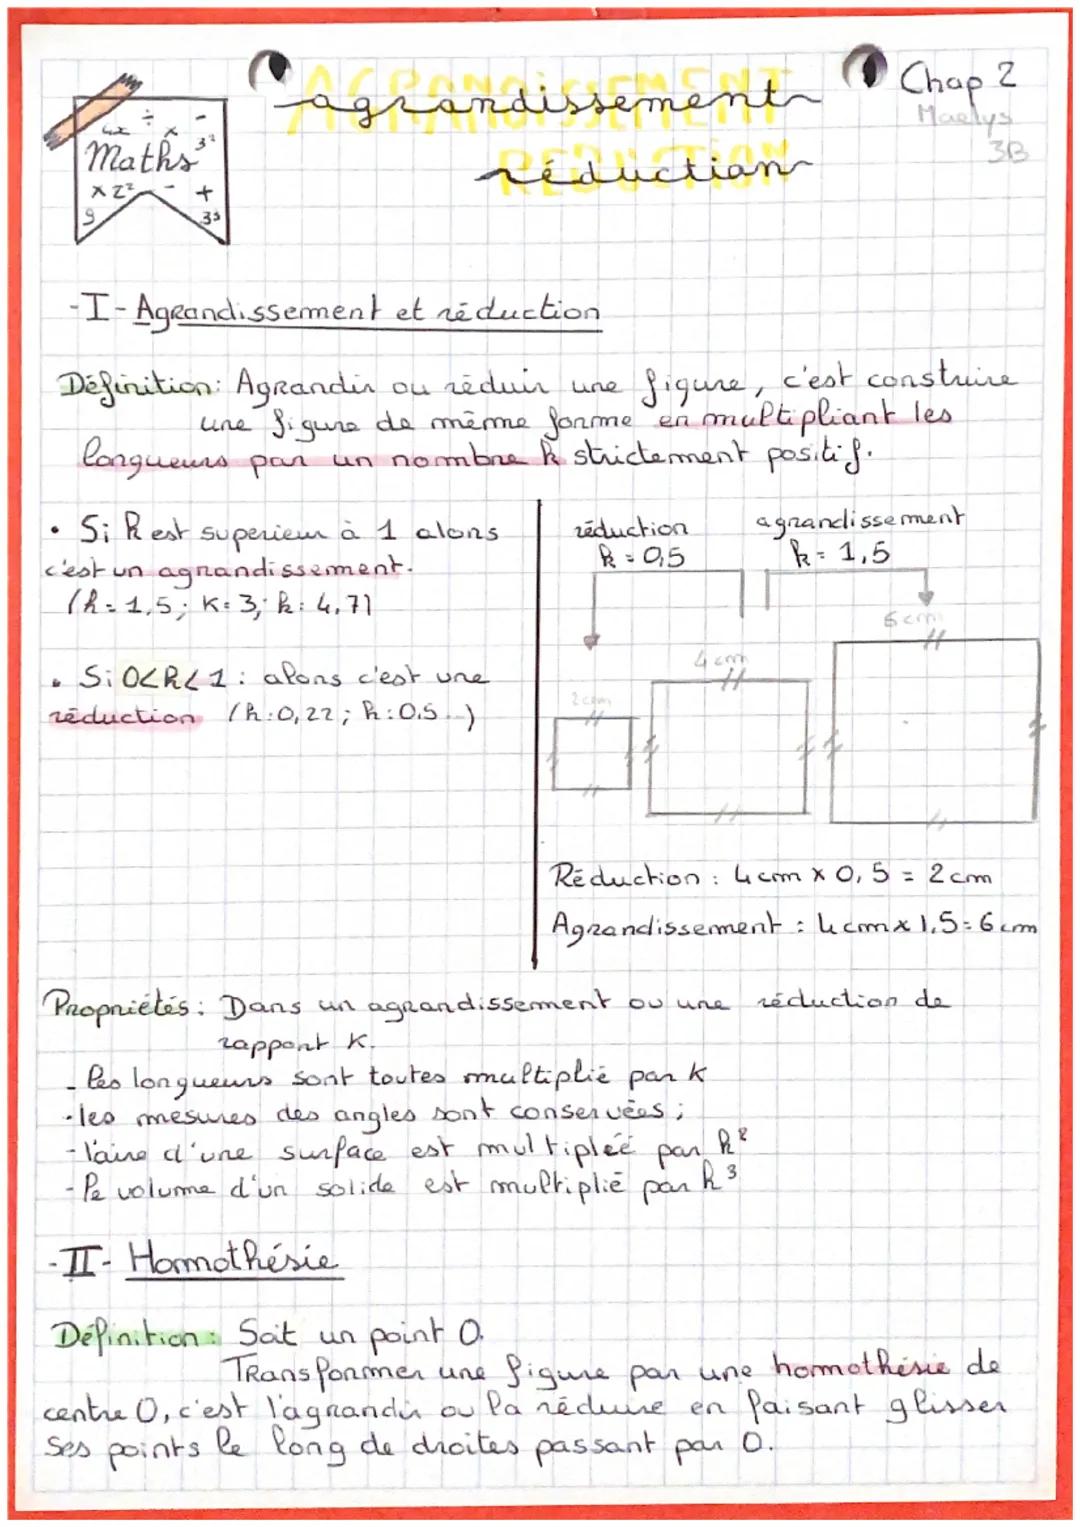 agrandissement
AGRANDISSEMENT
Chap 2
Maelys
3B
Maths
réduction
REDUCTION
-I- Agrandissement et réduction
Définition: Agrandir ou réduir une figure, c'est construire
une figure de même forme en multipliant les
longueurs par un nombre k strictement positif.
• Si k est superieur à 1 alors
c'est un agrandissement.
(k = 1,5; K = 3; k: 4,7)
• Si 0<k<1 : alors c'est une
réduction (k:0,22; k:0.5...)
réduction
k = 0,5
agrandissement
k = 1,5
2 cm
4 cm
6 cm
Réduction : 4 cm x 0,5 = 2 cm
Agrandissement : 4 cm x 1,5 = 6 cm
Propriétés : Dans un agrandissement ou une réduction de
rapport K.
- les longueurs sont toutes multiplié par K
- les mesures des angles sont conservées ;
- l'aire d'une surface est multipleé par k²
- le volume d'un solide est multiplié par k³
-II- Homothésie
Définition : Soit un point O.
Transformer une figure par une homothésie de
centre O, c'est l'agrandir ou la réduire en faisant glisser
ses points le long de droites passant par O.